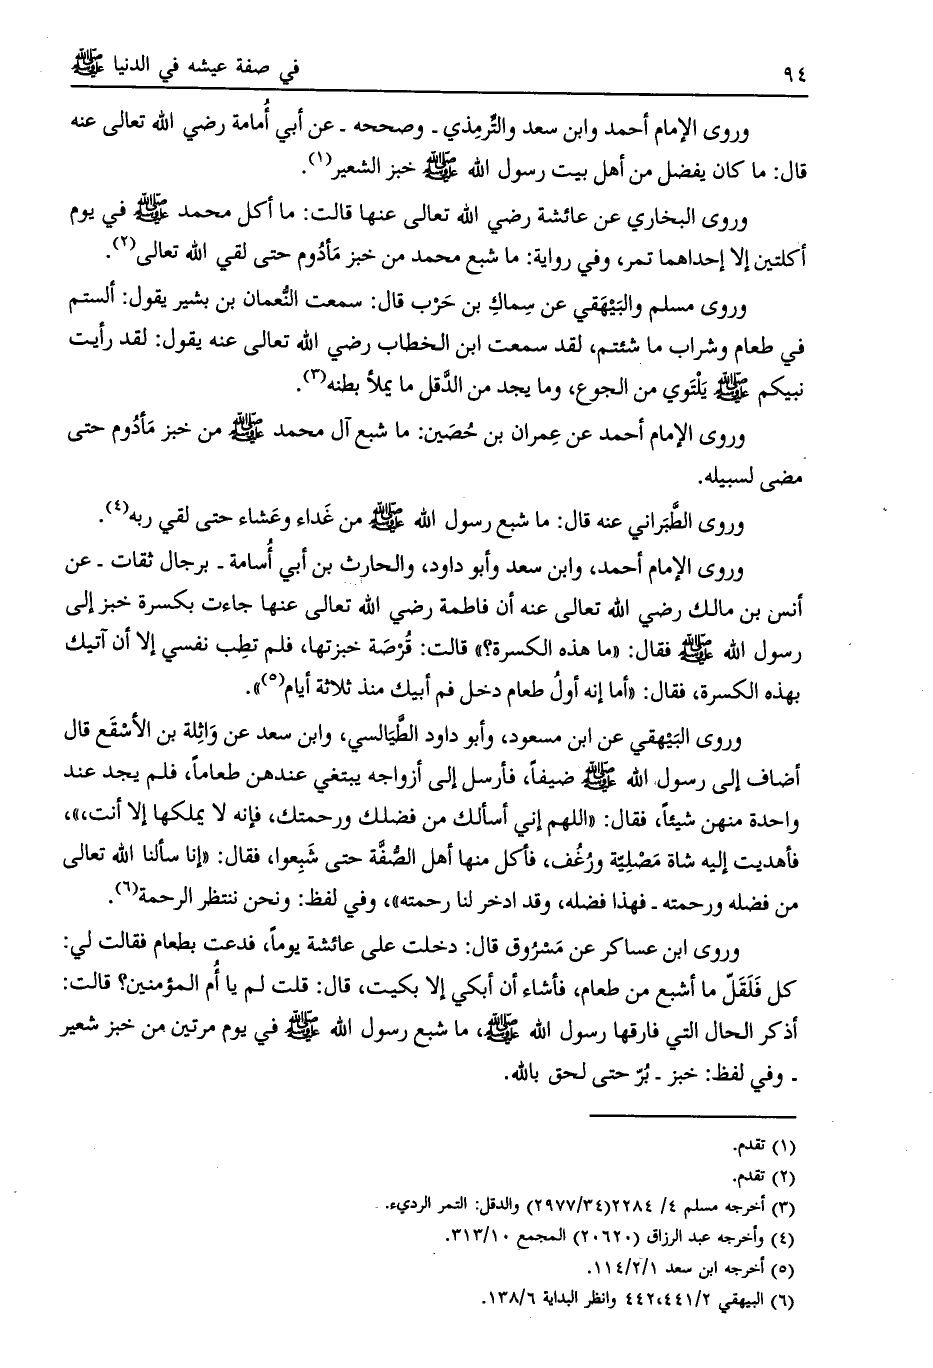 ٩٤ في صفة عيشه في الدنيا ﷺ
وروى الإمام أحمد وابن سعد والتِّرمِذي ـ وصححه ـ عن أبي أُمامة رضي الله تعالى عنه
قال: ما كان يفضل من أهل بيت رسول الله ﷺ خبز الشعير(١).
وروى البخاري عن عائشة رضي الله تعالى عنها قالت: ما أكل محمد ﷺ في يوم
أكلتين إلا إحداهما تمر، وفي رواية: ما شبع محمد من خبز مَأدُوم حتى لقي الله تعالى(٢).
وروى مسلم والبَيْهَقي عن سِماكِ بن حَرْب قال: سمعت النُّعمان بن بشير يقول: ألستم
في طعام وشراب ما شئتم، لقد سمعت ابن الخطاب رضي الله تعالى عنه يقول: لقد رأيت
نبيكم ﷺ يَلْتَوي من الجوع، وما يجد من الدَّقل ما يملأ بطنه(٣).
وروى الإمام أحمد عن عِمران بن حُصَين: ما شبع آل محمد ﷺ من خبز مَأدُوم حتى
مضى لسبيله.
وروى الطَّبَراني عنه قال: ما شبع رسول الله ﷺ من غَداء وعَشاء حتى لقي ربه(٤).
وروى الإمام أحمد، وابن سعد وأبو داود، والحارث بن أبي أُسامة ـ برجال ثقات ـ عن
أنس بن مالك رضي الله تعالى عنه أن فاطمة رضي الله تعالى عنها جاءت بكسرة خبز إلى
رسول الله ﷺ فقال: «ما هذه الكسرة؟» قالت: قُرْصَة خبزتها، فلم تطِب نفسي إلا أن آتيك
بهذه الكسرة، فقال: «أما إنه أولُ طعام دخل فم أبيك منذ ثلاثة أيام(٥)».
وروى البَيْهقي عن ابن مسعود، وأبو داود الطَّيَالسي، وابن سعد عن وَاثِلة بن الأسْقَع قال
أضاف إلى رسول الله ﷺ ضيفاً، فأرسل إلى أزواجه يبتغي عندهن طعاماً، فلم يجد عند
واحدة منهن شيئاً، فقال: «اللهم إني أسألك من فضلك ورحمتك، فإنه لا يملكها إلا أنت،»،
فأهديت إليه شاة مَصْلِيّة ورُغُف، فأكل منها أهل الصُّفَّة حتى شَبِعوا، فقال: «إنا سألنا الله تعالى
من فضله ورحمته ـ فهذا فضله، وقد ادخر لنا رحمته»، وفي لفظ: ونحن ننتظر الرحمة(٦).
وروى ابن عساكر عن مَسْرُوق قال: دخلت على عائشة يوماً، فدعت بطعام فقالت لي:
كل فَلَقَلّ ما أشبع من طعام، فأشاء أن أبكي إلا بكيت، قال: قلت لم يا أُم المؤمنين؟ قالت:
أذكر الحال التي فارقها رسول الله ﷺ، ما شبع رسول الله ﷺ في يوم مرتين من خبز شعير
ـ وفي لفظ: خبز ـ بُرّ حتى لحق بالله.
(١) تقدم.
(٢) تقدم.
(٣) أخرجه مسلم ٤/ ٢٢٨٤(٢٩٧٧/٣٤) والدقل: التمر الرديء.
(٤) وأخرجه عبد الرزاق (٢٠٦٢٠) المجمع ٣١٣/١٠.
(٥) أخرجه ابن سعد ١١٤/٢/١.
(٦) البيهقي ٤٤٢،٤٤١/٢ وانظر البداية ١٣٨/٦.